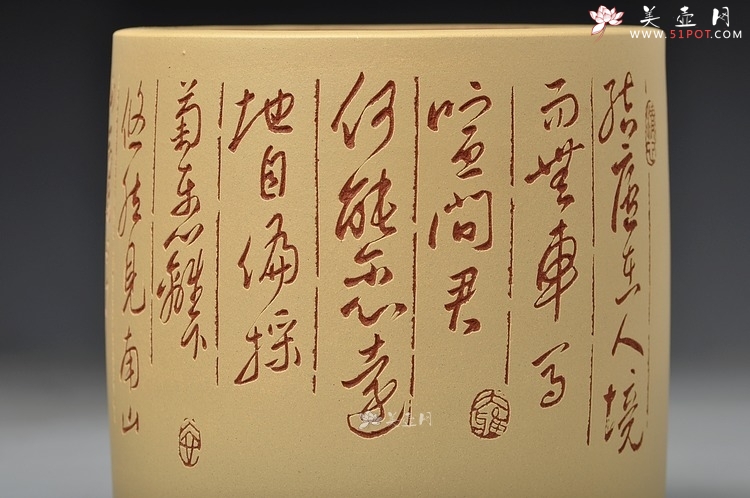 美壶网
WWW.51POT.COM
結廬在人境
而無車馬
喧問君
何能尔心遠
地自偏採
菊東籬下
悠然見南山
美壶网